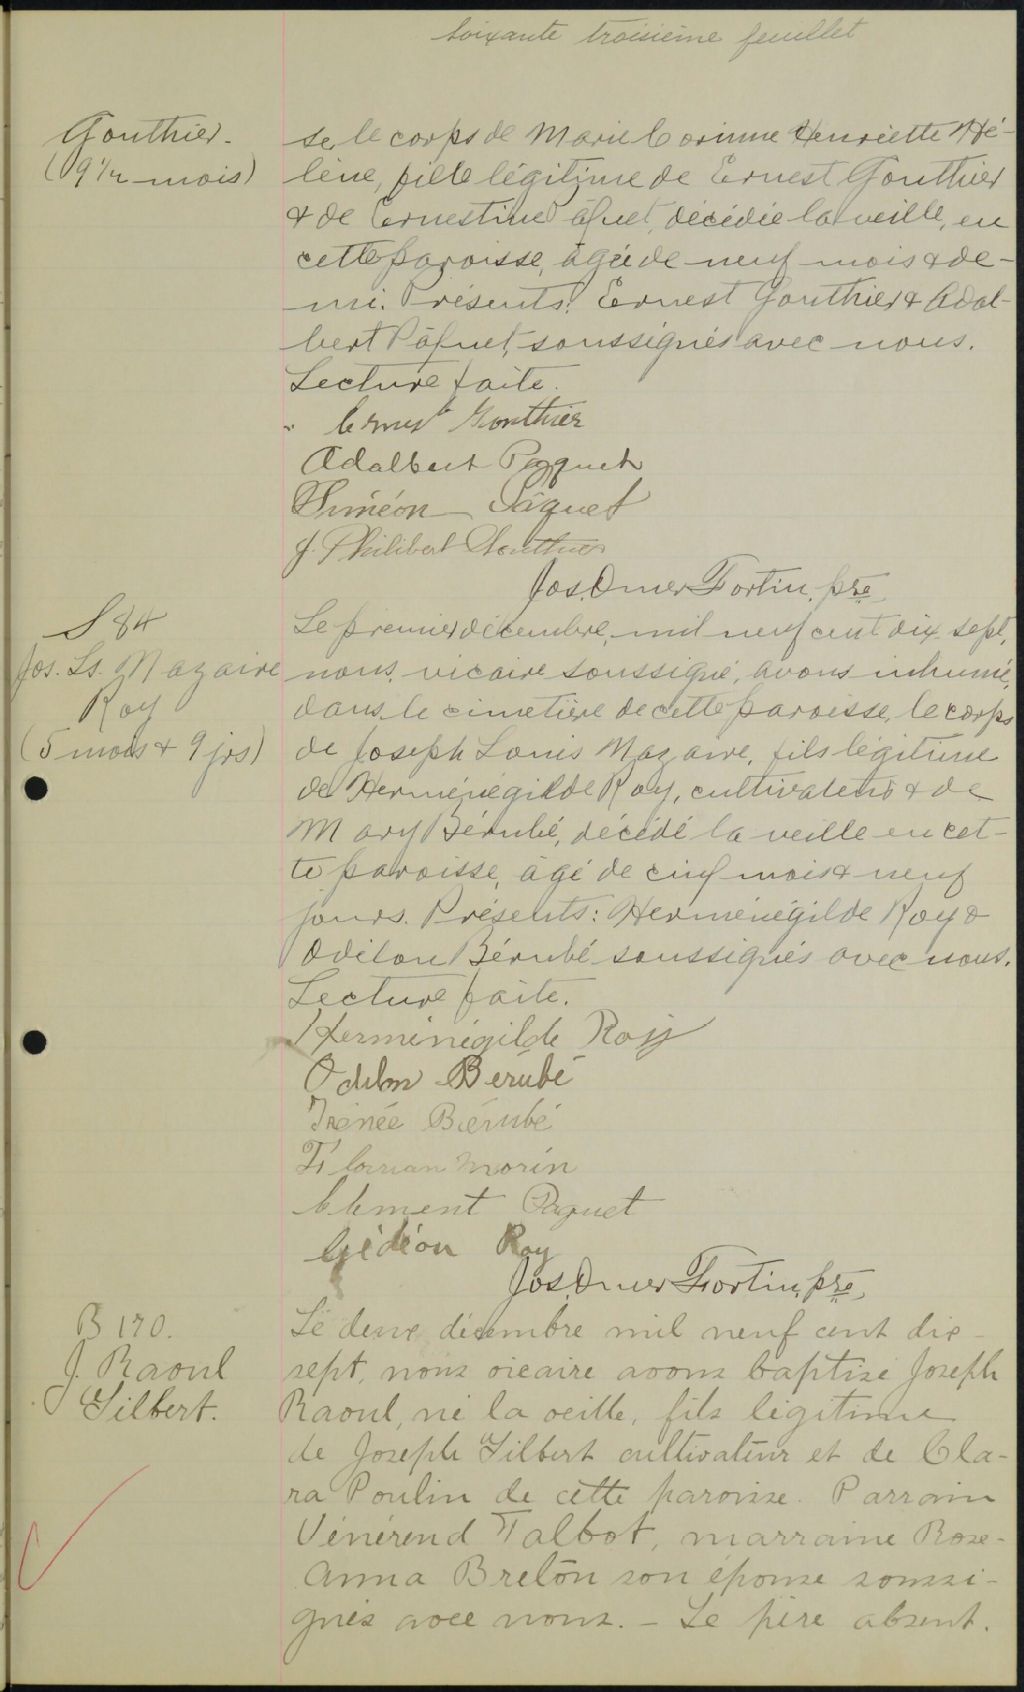 soixante troisième feuillet
Gouthier.
(9 1/2 mois)
se, le corps de Marie Corinne Henriette Hé-
lène, fille légitime de Ernest Gouthier
& de Ernestine Pâquet, décédée la veille, en
cette paroisse, âgée de neuf mois & de-
mi. Présents: Ernest Gouthier & Adal-
bert Pâquet, soussignés avec nous.
Lecture faite.
Ernest Gonthier
Adalbert Paquet
Siméon Pâquet
J. Philibert Gonthier
Jos. Omer Fortin, ptre
S 84
Jos. Ls. Nazaire
Roy
(5 mois & 9 jrs)
Le premier décembre, mil neuf cent dix sept,
nous, vicaire soussigné, avons inhumé,
dans le cimetière de cette paroisse, le corps
de Joseph Louis Nazaire, fils légitime
de Herménégilde Roy, cultivateur & de
Mary Bérubé, décédé la veille en cet-
te paroisse, âgé de cinq mois & neuf
jours. Présents: Herménégilde Roy &
Odilon Bérubé soussignés avec nous.
Lecture faite.
Herménégilde Roy
Odilon Berubé
Irénée Bérubé
Florian Morin
Clément Paquet
Gédéon Roy
Jos. Omer Fortin, ptre,
B 170.
J. Raoul
Gilbert.
Le deux décembre mil neuf cent dix-
sept, nous vicaire avons baptisé Joseph
Raoul, né la veille, fils légitime
de Joseph Gilbert cultivateur et de Cla-
ra Poulin de cette paroisse. Parrain
Vénérend Talbot, marraine Rose-
Anna Breton son épouse soussi-
gnés avec nous. - Le père absent.